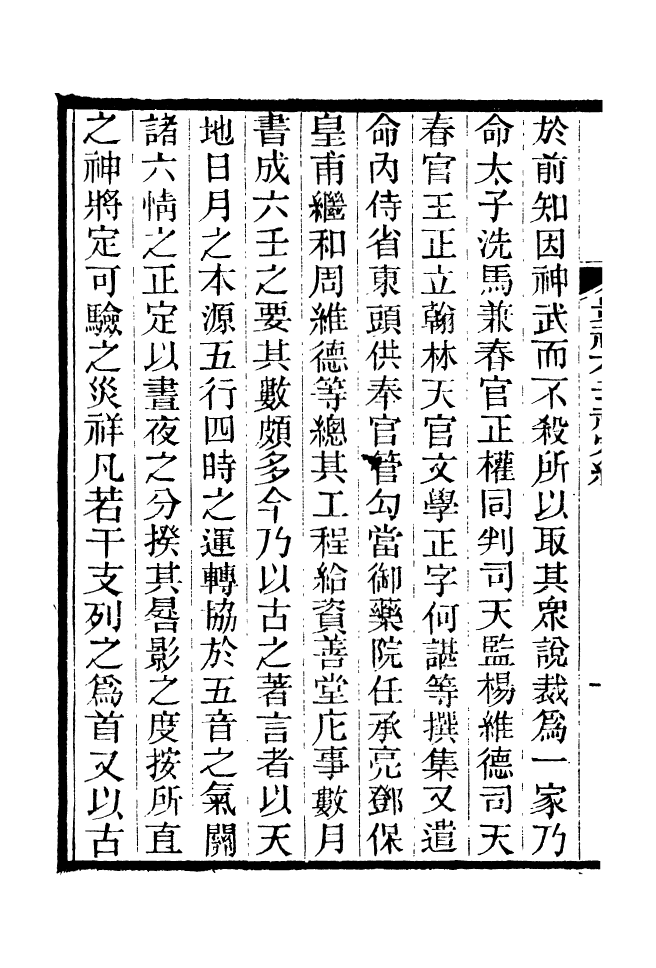 於前知因神武而不殺所以取其衆說裁爲一家乃
命太子洗馬兼春官正權同判司天監楊維德司天
春官王正立翰林天官文學正字何諶等撰集又遣
命內侍省東頭供奉官管勾當御藥院任承亮鄧保
皇甫繼和周維德等總其工程給資善堂庀事數月
書成六壬之要其數頗多今乃以古之著言者以天
地日月之本源五行四時之運轉協於五音之氣關
諸六情之正定以晝夜之分揆其晷影之度按所直
之神將定可驗之災祥凡若干支列之爲首又以古
一